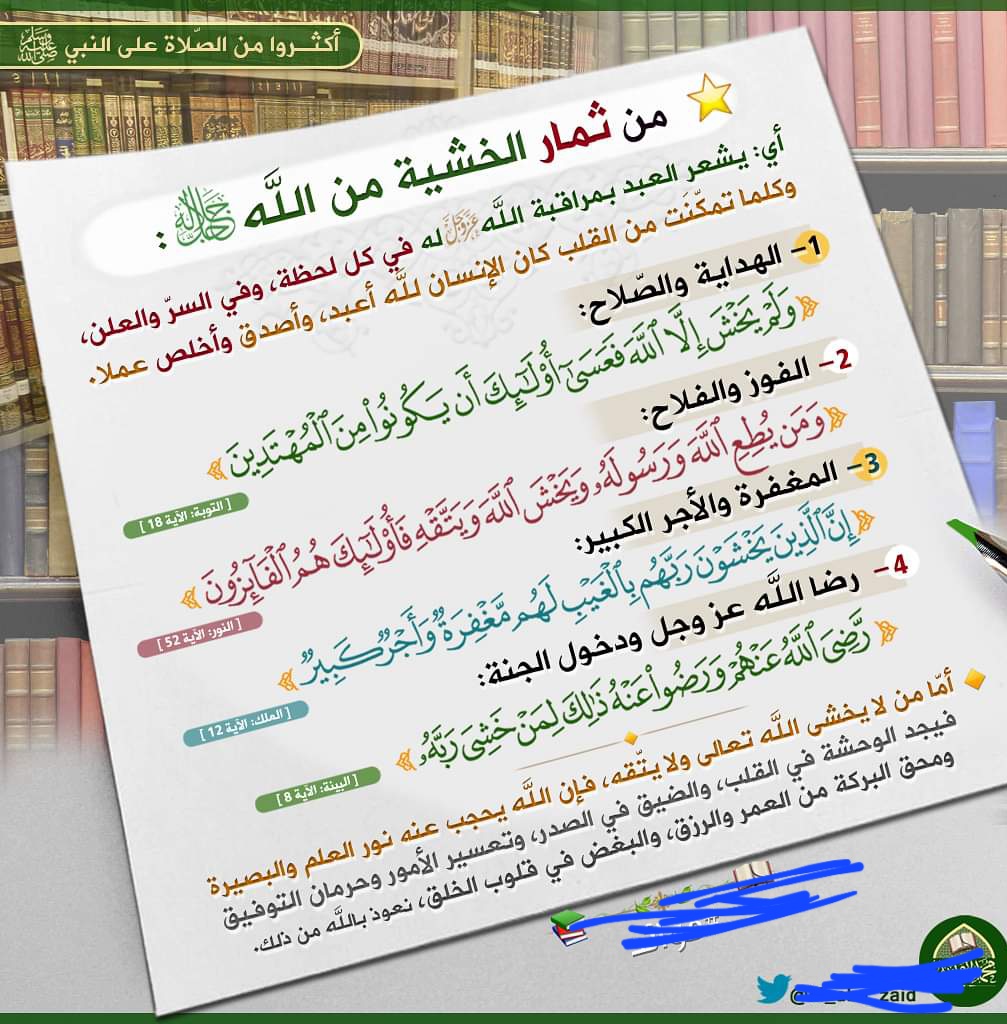 أكثروا من الصّلاة على النبي ﷺ
من ثمار الخشية من اللَّه جل جلاله :
أي: يشعر العبد بمراقبة اللَّه عز وجل له في كل لحظة، وفي السرّ والعلن،
وكلما تمكّنَت من القلب كان الإنسان للَّه أعبد، وأصدق وأخلص عملا.
1- الهداية والصّلاح:
﴿وَلَمْ يَخْشَ إِلَّا ٱللَّهَ فَعَسَىٰٓ أُوْلَٰٓئِكَ أَن يَكُونُواْ مِنَ ٱلْمُهْتَدِينَ﴾
[التوبة: الآية 18]
2- الفوز والفلاح:
﴿وَمَن يُطِعِ ٱللَّهَ وَرَسُولَهُۥ وَيَخْشَ ٱللَّهَ وَيَتَّقْهِ فَأُوْلَٰٓئِكَ هُمُ ٱلْفَآئِزُونَ﴾
[النور: الآية 52]
3- المغفرة والأجر الكبير:
﴿إِنَّ ٱلَّذِينَ يَخْشَوْنَ رَبَّهُم بِٱلْغَيْبِ لَهُم مَّغْفِرَةٌ وَأَجْرٌ كَبِيرٌ﴾
[الملك: الآية 12]
4- رضا اللَّه عز وجل ودخول الجنة:
﴿رَّضِىَ ٱللَّهُ عَنْهُمْ وَرَضُواْ عَنْهُ ذَٰلِكَ لِمَنْ خَشِىَ رَبَّهُۥ﴾
[البينة: الآية 8]
أمّا من لا يخشى اللَّه تعالى ولا يتّقه، فإن اللَّه يحجب عنه نور العلم والبصيرة
فيجد الوحشة في القلب، والضيق في الصدر، وتعسير الأمور وحرمان التوفيق
ومحق البركة من العمر والرزق، والبغض في قلوب الخلق، نعوذ باللَّه من ذلك.
zaid